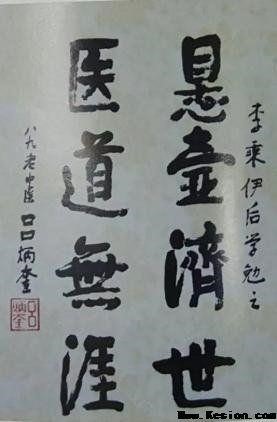 李乘伊后学勉之
悬壶濟世
医道無涯
八九老中医 吕炳奎
吕炳奎
Www.Kesion.com